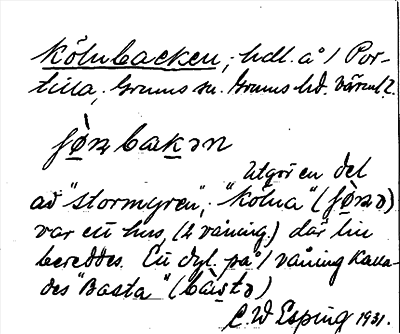 Kölnbacken, hdl. å 1 Por-
tilla, Grums sn. Grums hd. Värml.
bakən
Utgör en del
av "Stormyren", "Kölna"
var ett hus, (2 våning.) där lin
bereddes. En dyl. på 1 våning kalla-
des "Basta"
C. W. Esping 1931.